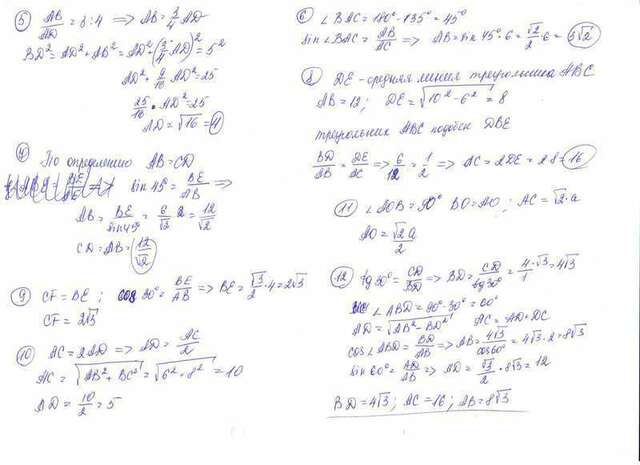 5) AB/AD = 3:4 => AB = 3/4 AD
BD² = AD² + AB² = AD² + (3/4 AD)² = 5²
AD² + 9/16 AD² = 25
25/16 · AD² = 25
AD = √16 = 4
По определению AB = CD
sin 45° = BE/AB =>
AB = BE/sin 45° = 6/√2 · 2 = 12/√2
CD = AB = 12/√2
9) CF = BE; cos 30° = BE/AB => BE = √3/2 · 4 = 2√3
CF = 2√3
10) AC = 2AD => AD = AC/2
AC = √(AB² + BC²) = √(6² + 8²) = 10
AD = 10/2 = 5
6) ∠BAC = 180° - 135° = 45°
sin ∠BAC = AB/AC => AB = sin 45° · 6 = √2/2 · 6 = 3√2
8) DE - средняя линия треугольника ABC
AB = 12; DE = √(10² - 6²) = 8
треугольник ABC подобен DBE
BD/AB = DE/AC => 6/12 = 1/2 => AC = 2DE = 2·8 = 16
11) ∠AOB = 90° BO = AO; AC = √2·a
AO = √2a/2
12) tg 30° = CD/BD => BD = CD/tg 30° = 4·√3/1 = 4√3
∠ABD = 90° - 30° = 60°
AD = √(AB² - BD²) AC = AD + DC
cos ∠ABD = BD/AB => AB = 4√3/cos 60° = 4√3·2 = 8√3
sin 60° = AD/AB => AD = √3/2 · 8√3 = 12
BD = 4√3; AC = 16; AB = 8√3